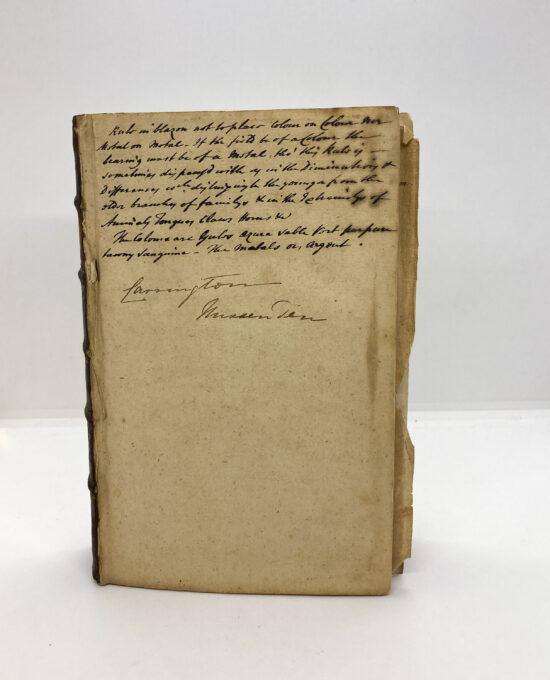 Rule in blazon not to place Colour on Colour nor
Metal on Metal - If the field be of a Colour the
bearing must be of a Metal, tho' this Rule is
sometimes dispens'd with as in the Diminutions &
Differences wch distinguish the younger from the
older branches of familys & in the Extremitys of
Animals Tongues Claws Horns &c
The Colours are Gules azure sable Vert purpure
tawny Sanguine - The Metals or, Argent .
Carrington